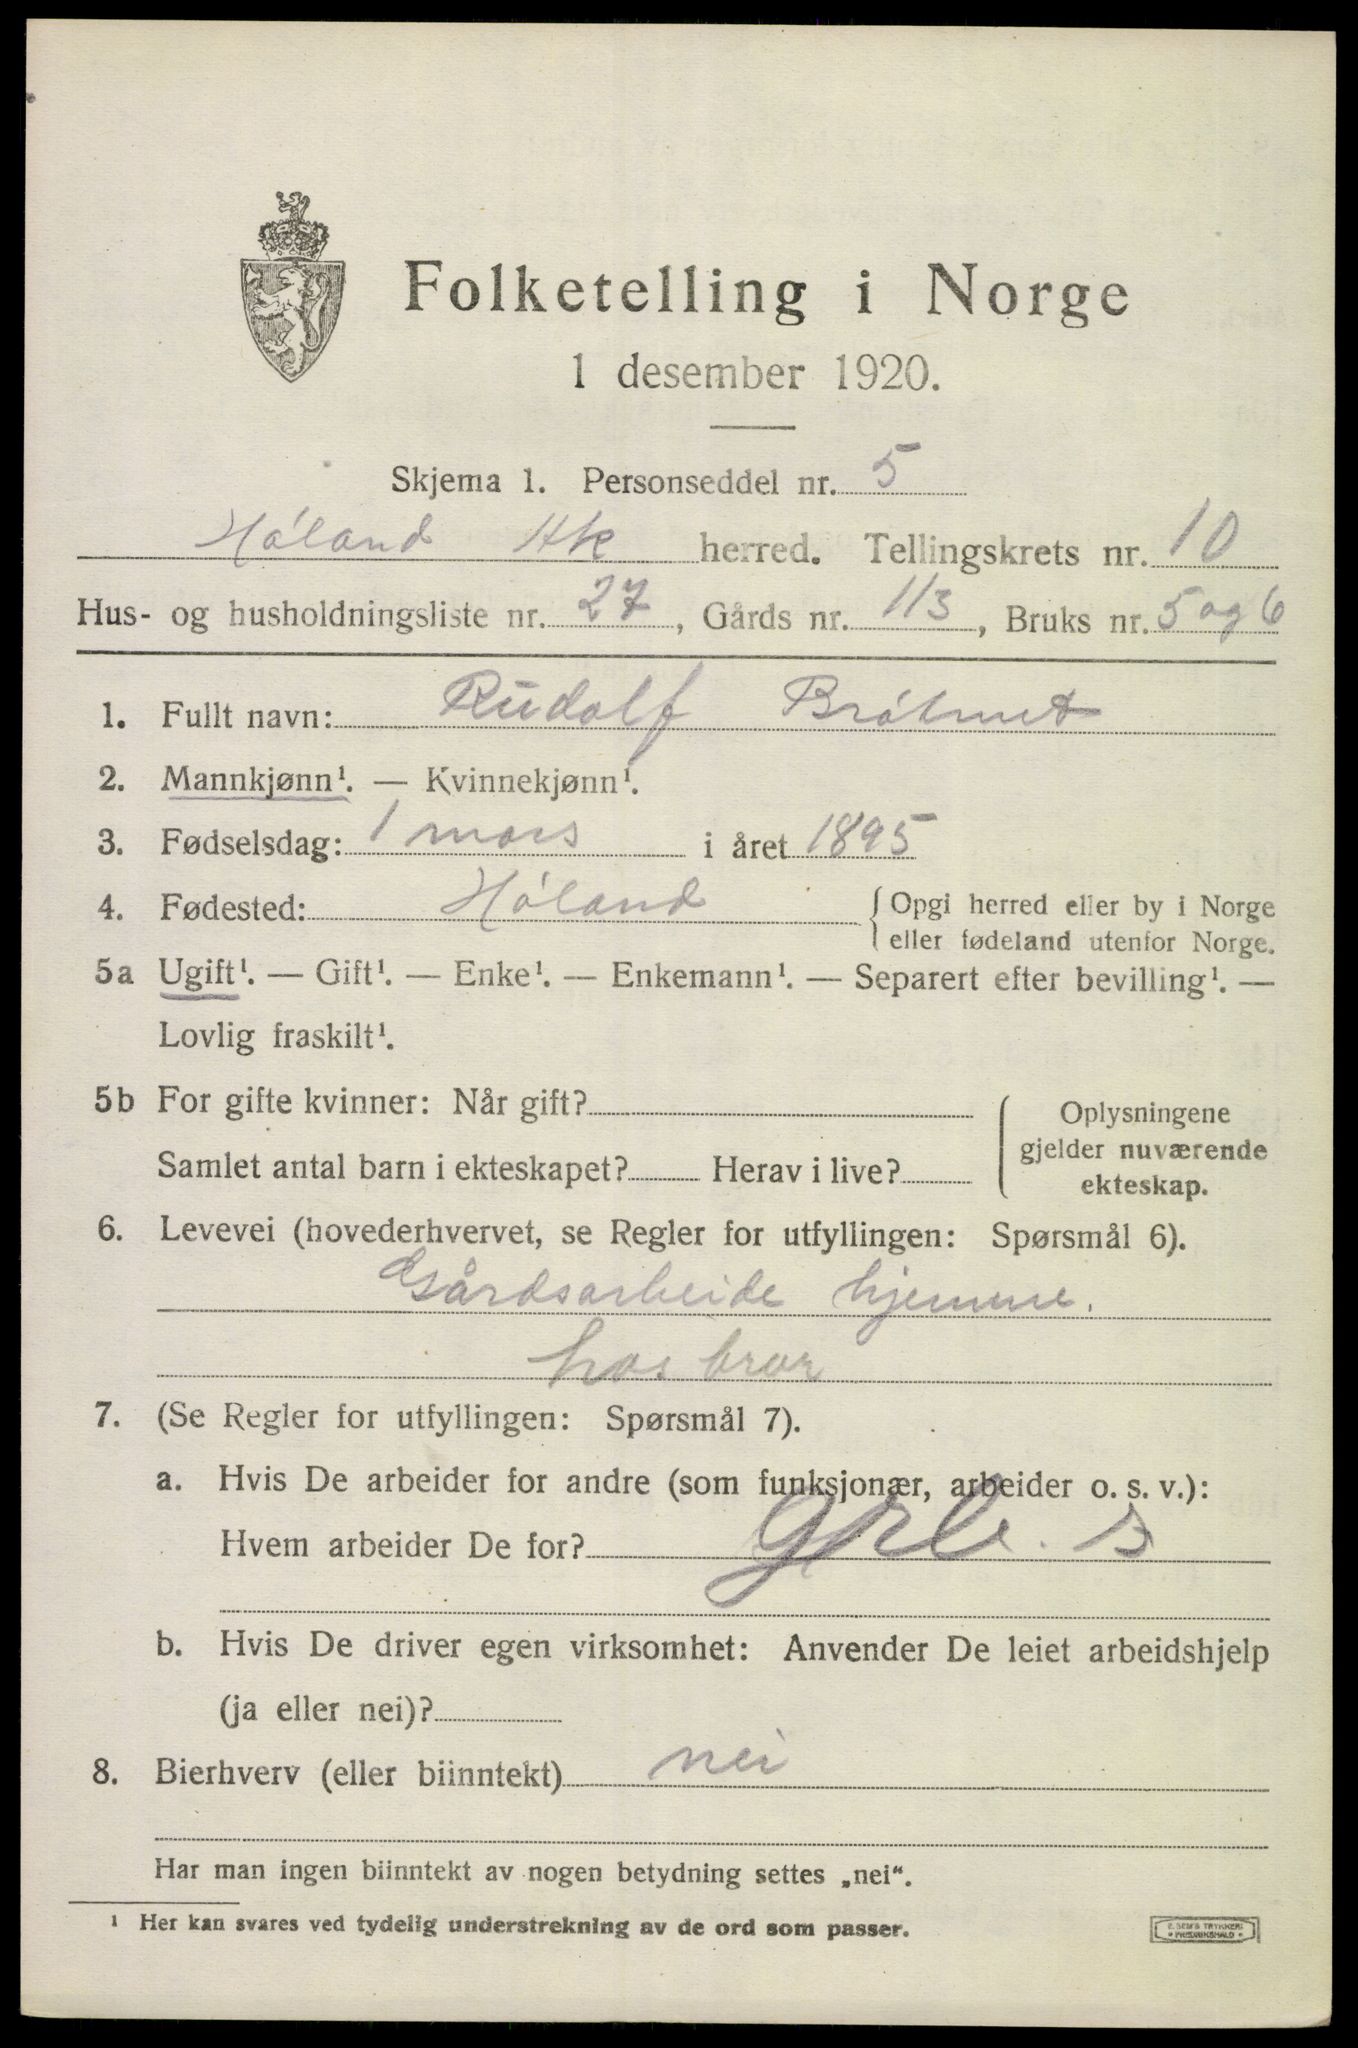 Folketelling i Norge
1 desember 1920.
Skjema 1. Personseddel nr. 5
Høland Hk herred. Tellingskrets nr. 10
Hus- og husholdningsliste nr. 27, Gårds nr. 113, Bruks nr. 5 og 6
1. Fullt navn: Rudolf
2. Mannkjønn¹. — Kvinnekjønn¹.
3. Fødselsdag: 1 mars i året 1895
4. Fødested: Høland { Opgi herred eller by i Norge
eller fødeland utenfor Norge.
5a Ugift¹. — Gift¹. — Enke¹. — Enkemann¹. — Separert efter bevilling¹. —
Lovlig fraskilt¹.
5b For gifte kvinner: Når gift?
Samlet antal barn i ekteskapet? Herav i live?
Oplysningene
gjelder nuværende
ekteskap.
6. Levevei (hovederhvervet, se Regler for utfyllingen: Spørsmål 6).
Gårdsarbeide hjemme.
hos bror
7. (Se Regler for utfyllingen: Spørsmål 7).
a. Hvis De arbeider for andre (som funksjonær, arbeider o. s. v.):
Hvem arbeider De for?
b. Hvis De driver egen virksomhet: Anvender De leiet arbeidshjelp
(ja eller nei)?
8. Bierhverv (eller biinntekt) nei
Har man ingen biinntekt av nogen betydning settes „nei“.
¹ Her kan svares ved tydelig understrekning av de ord som passer.
E. SEM'S TRYKKERI
• FREDRIKSHALD •